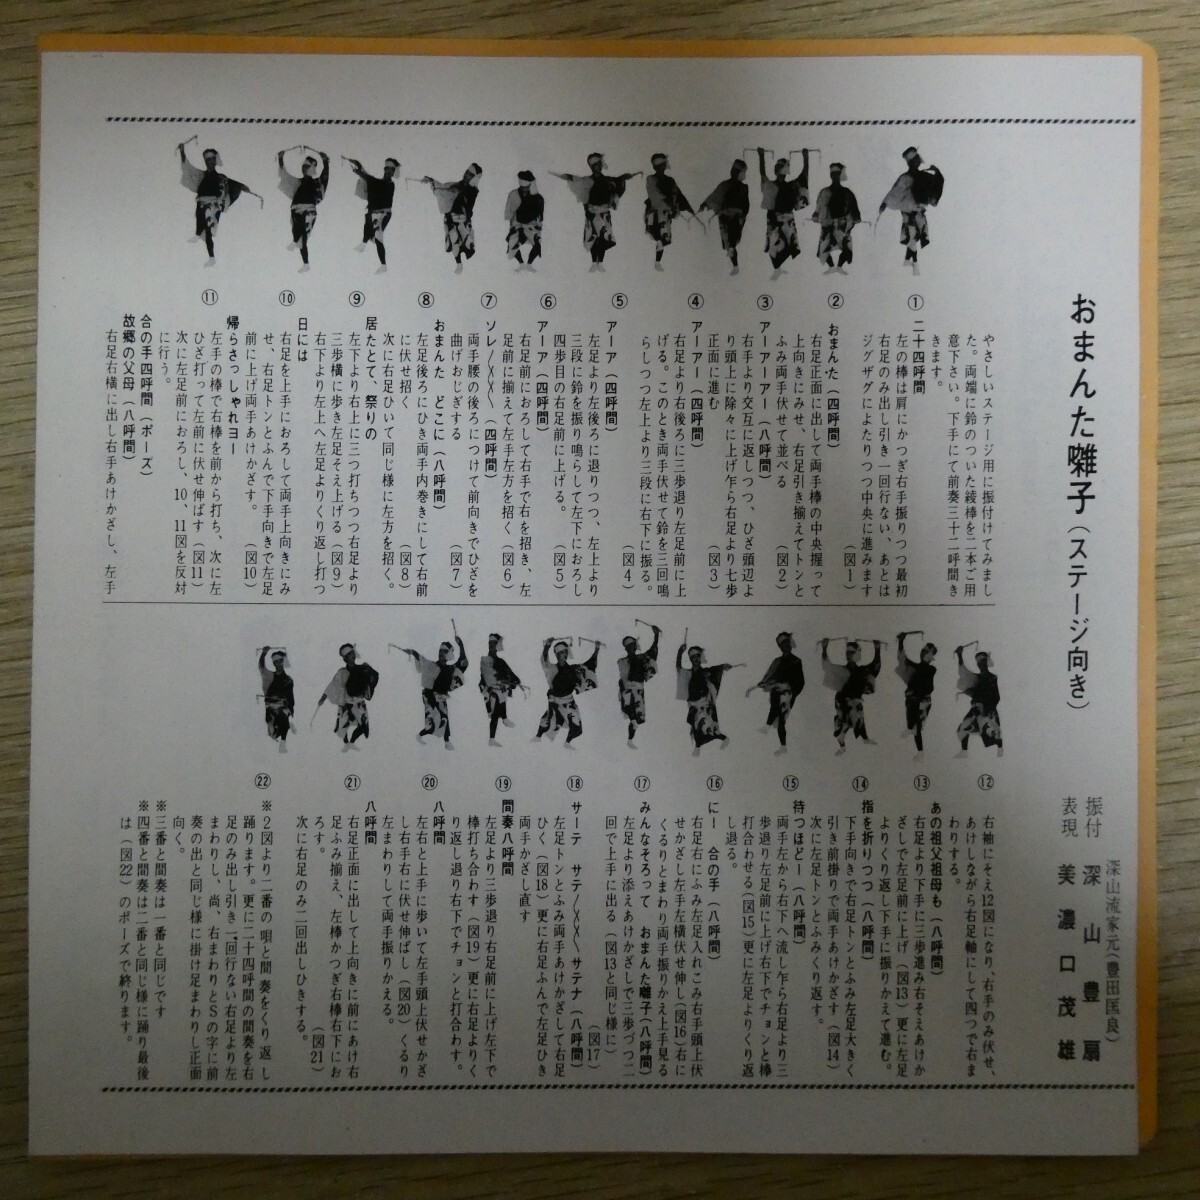 おまんた囃子(ステージ向き)
深山流家元(豊田匡良)
振付 深山豊扇
表現 美濃口茂雄
やさしいステージ用に振付けてみまし
た。両端に鈴のついた綾棒を二本ご用
意下さい。下手にて前奏三十二呼間き
きます。
①
二十四呼間
左の棒は肩にかつぎ右手振りつつ最初
右足のみ出し引き一回行ない、あとは
ジグザグによたりつつ中央に進みます
(図1)
②
おまんた(四呼間)
右足正面に出して両手棒の中央握って
上向きにみせ、右足引き揃えてトンと
ふみ両手伏せて並べる (図2)
③
アーアーアー(八呼間)
右手より交互に返しつつ、ひざ頭辺よ
り頭上に除々に上げ乍ら右足より七歩
正面に進む (図3)
④
アーアー(四呼間)
右足より右後ろに三歩退り左足前に上
げる。このとき両手伏せて鈴を三回鳴
らしつつ左上より三段に右下に振る。
(図4)
⑤
アーア(四呼間)
左足より左後ろに退りつつ、左上より
三段に鈴を振り鳴らして左下におろし
四歩目の右足前に上げる。 (図5)
⑥
アーア(四呼間)
右足前におろして右手で右を招き、左
足前に揃えて左手左方を招く(図6)
⑦
ソレ/\/\/\(四呼間)
両手腰の後ろにつけて前向きでひざを
曲げおじぎする (図7)
⑧
おまんた どこに(八呼間)
左足後ろにひき両手内巻きにして右前
に伏せ招く (図8)
次に右足ひいて同じ様に左方を招く。
⑨
居たとて、祭りの
左下より右上に三つ打ちつつ右足より
三歩横に歩き左足そえ上げる(図9)
右下より左上へ左足よりくり返し打つ
⑩
日には
右足を上手におろして両手上向きにみ
せ、右足トンとふんで下手向きで左足
前に上げ両手あけかざす。(図10)
⑪
帰らさっしゃれヨー
左手の棒で右棒を前から打ち、次に左
ひざ打って左前に伏せ伸ばす(図11)
次に左足前におろし、10、11図を反対
に行う。
合の手四呼間(ポーズ)
故郷の父母(八呼間)
右足右横に出し右手あけかざし、左手
⑫
右袖にそえ12図になり、右手のみ伏せ、
あけしながら右足軸にして四つで右ま
わりする。
⑬
あの祖父祖母も(八呼間)
右足より下手に三歩進み右そえあけか
ざしで左足前に上げ(図13)更に左足
よりくり返し下手に振りかえて進む。
⑭
指を折りつつ(八呼間)
下手向きで右足トンとふみ左足大きく
引き前掛りで両手あけかざす(図14)
次に左足トンとふみくり返す。
⑮
待つほどー(八呼間)
両手左から右下へ流し乍ら右足より三
歩退り左足前に上げ右下でチョンと棒
打合わせる(図15)更に左足よりくり返
し退る。
⑯
にー 合の手(八呼間)
右足右にふみ左足入れこみ右手頭上伏
せかざし左手左横伏せ伸し(図16)右に
くるりとまわり両手振りかえ上手見る
⑰
みんなそろって おまんた囃子(八呼間)
左足より添えあけかざしで三歩づつ二
回で上手に出る(図13と同じ様に)
(図17)
⑱
サーテ サテ/\/\/\ サテナ(八呼間)
左足トンとふみ両手あけかざして右足
ひく(図18)更に右足ふんで左足ひき
両手かざし直す
⑲
間奏八呼間
左足より三歩退り右足前に上げ左下で
棒打ち合わす(図19)更に右足よりく
り返し退り右下でチョンと打合わす。
⑳
八呼間
左右右と上手に歩いて左手頭上伏せかざ
し右手右に伏せ伸ばし(図20)くるり
左まわりして両手振りかえる。
㉑
八呼間
右足正面に出して上向きに前にあけ右
足ふみ揃え、左棒かつぎ右棒右下にお
ろす。 (図21)
次に右足のみ二回出しひきする。
㉒
※2図より二番の唄と間奏をくり返し
踊ります。更に二十四呼間の間奏を右
足のみ出し引き二回行ない右足より左
まわりし、尚、右まわりとSの字に前
奏の出と同じ様に掛け足まわりし正面
向く。
※三番と間奏は一番と同じです
※四番と間奏は二番と同じ様に踊り最後
は(図22)のポーズで終ります。